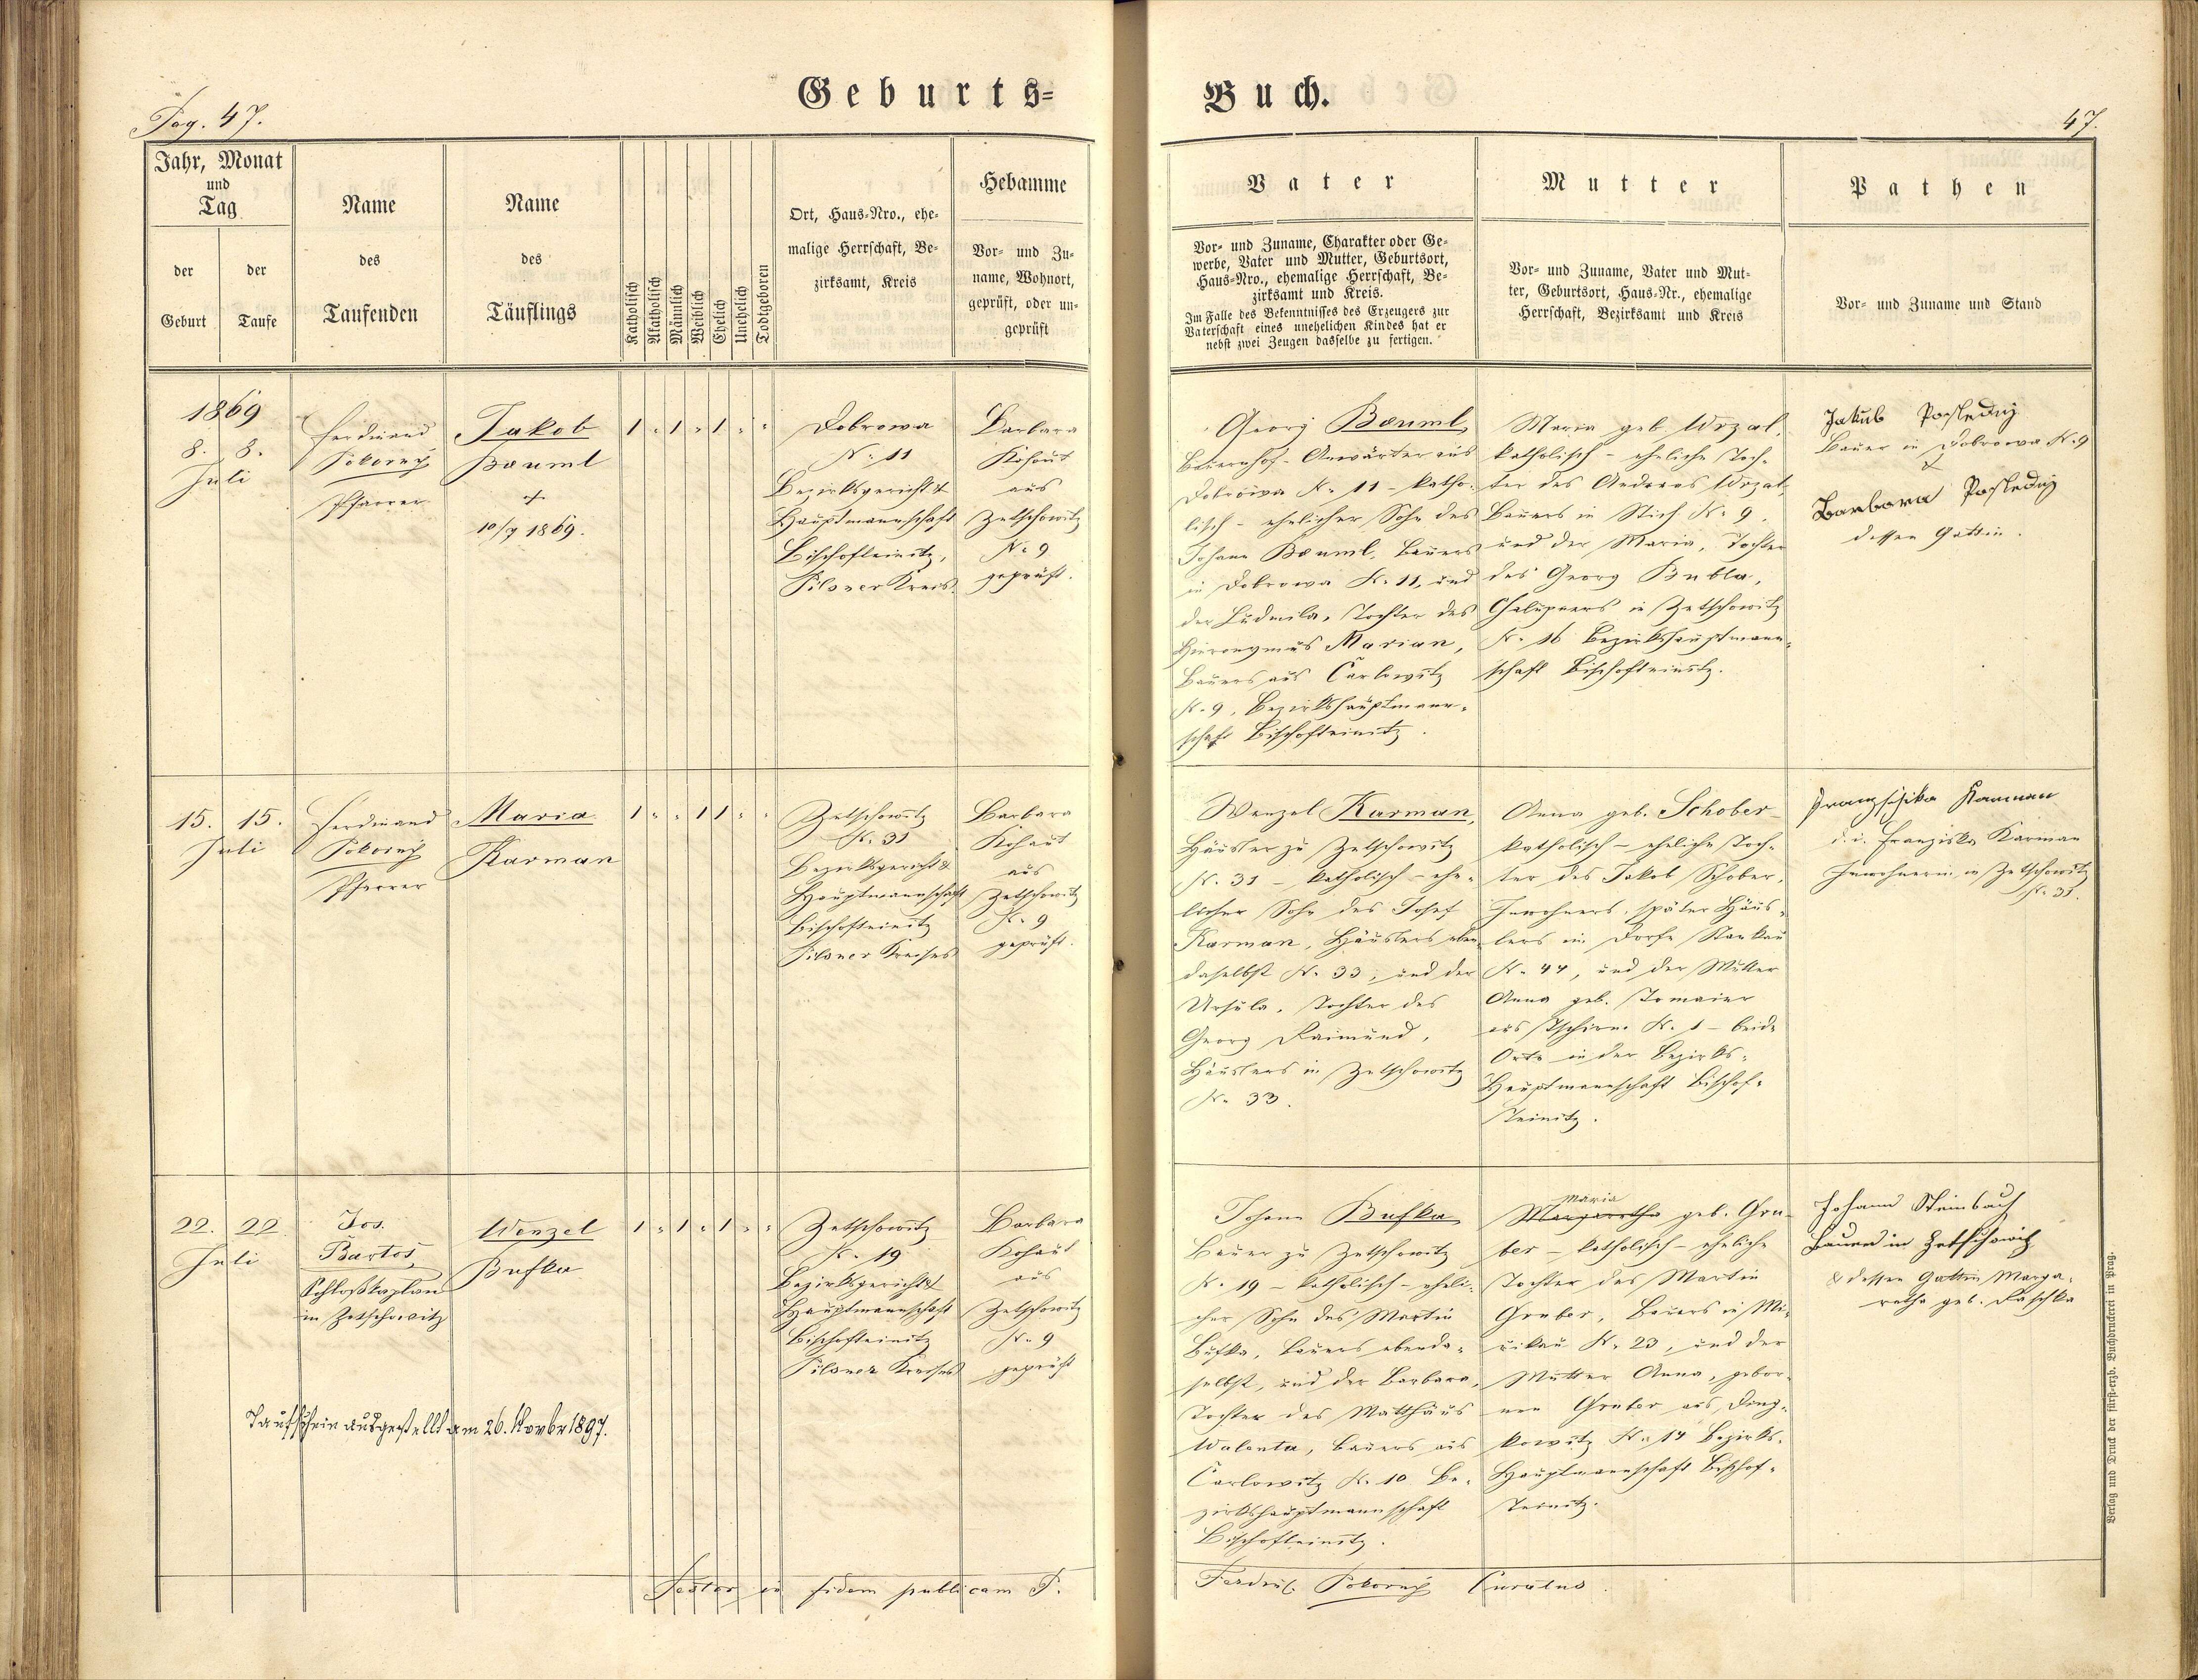 Geburts-
Buch.
Pag. 47.
47.
Jahr, Monat
und
Tag
der
Geburt
der
Taufe
Name
des
Taufenden
Name
des
Täuflings
Katholisch
Akatholisch
Männlich
Weiblich
Ehelich
Unehelich
Todtgeboren
Ort, Haus-Nro., ehe-
malige Herrschaft, Be-
zirksamt, Kreis
Hebamme
Vor- und Zu-
name, Wohnort,
geprüft, oder un-
geprüft
Vater
Vor- und Zuname, Charakter oder Ge-
werbe, Vater und Mutter, Geburtsort,
Haus-Nro., ehemalige Herrschaft, Be-
zirksamt und Kreis.
Im Falle des Bekenntnisses des Erzeugers zur
Vaterschaft eines unehelichen Kindes hat er
nebst zwei Zeugen dasselbe zu fertigen.
Mutter
Vor- und Zuname, Vater und Mut-
ter, Geburtsort, Haus-Nr., ehemalige
Herrschaft, Bezirksamt und Kreis
Pathen
Vor- und Zuname und Stand
1869
8. 8.
Juli
Ferdinand
Pokorný
Pfarrer
Jakob
Bæuml
+
10/7 1869.
1 " 1 " 1 " "
Dobrowa
N: 11
Bezirksgericht &
Hauptmannschaft
Bischofteinitz,
Pilsner Kreis.
Barbara
Kohout
aus
Zetschowitz
N: 9
geprüft.
Georg Bæuml,
Bauernhof-Anwärter aus
Dobrowa N. 11 - katho-
lisch - ehelicher Sohn des
Johann Bæuml, Bauers
in Dobrowa N. 11, und
der Ludmila, Tochter des
Hieronymus Marian,
Bauers aus Čarlowitz
N. 9, Bezirkshauptmann-
schaft Bischofteinitz.
Maria geb. Wrzal,
katholisch - eheliche Toch-
ter des Andreas Wrzal,
Bauers in Stich N. 9,
und der Maria, Tochter
des Georg Bubla,
Chalupners in Zetschowitz
N. 16 Bezirkshauptmann-
schaft Bischofteinitz.
Jakub Posledny
Bauer in Dobrowa N. 9
&
Barbora Posledny
dessen Gattin.
15. 15.
Juli
Ferdinand
Pokorný
Pfarrer
Maria
Karman
1 " " 1 1 " "
Zetschowitz
N. 31
Bezirksgericht &
Hauptmannschaft
Bischofteinitz
Pilsner Kreises
Barbara
Kohaut
aus
Zetschowitz
N. 9
geprüft.
Wenzel Karman,
Häusler zu Zetschowitz
N. 31 - katholisch - ehe-
licher Sohn des Josef
Karman, Häuslers eben-
daselbst N. 33, und der
Ursula, Tochter des
Georg Raimund,
Häuslers in Zetschowitz
N. 33.
Anna geb. Schober
katholisch - eheliche Toch-
ter des Jakob Schober,
Inwohners, später Häus-
lers im Dorfe Stankau
N. 44, und der Mutter
Anna geb. Tomaier
aus Tschirn N. 1 - beide
Orte in der Bezirks-
Hauptmannschaft Bischof-
teinitz.
Franzsiska Karman
d. i. Franziska Karman
Inwohnerin in Zetschowitz
N. 31.
22. 22.
Juli
Jos.
Bartoš,
Schloßkaplan
in Zetschowitz
Wenzel
Bufka
1 " 1 " 1 " "
Zetschowitz
N. 19
Bezirksgericht &
Hauptmannschaft
Bischofteinitz
Pilsner Kreises
Barbara
Kohaut
aus
Zetschowitz
N. 9
geprüft
Johann Bufka
Bauer zu Zetschowitz
N. 19 - katholisch - eheli-
cher Sohn des Martin
Bufka, Bauers ebenda-
selbst, und der Barbara,
Tochter des Matthäus
Walenta, Bauers aus
Čarlowitz N. 10 Be-
zirkshauptmannschaft
Bischofteinitz.
Maria
Margaretha geb. Gru-
ber - katholisch - eheliche
Tochter des Martin
Gruber, Bauers in Mi-
rikau N. 23, und der
Mutter Anna, gebor-
nen Gruber aus Ding-
kowitz N. 14 Bezirks-
Hauptmannschaft Bischof-
teinitz.
Johann Steinbach
Bauer in Zetschowitz
& dessen Gattin Marga-
retha geb. Raschka
Taufschein ausgestellt am 26. Novbr 1897.
Testor in fidem publicam P.
Ferdin. Pokorný Curatus.
Verlag und Druck der fürst-erzb. Buchdruckerei in Prag.